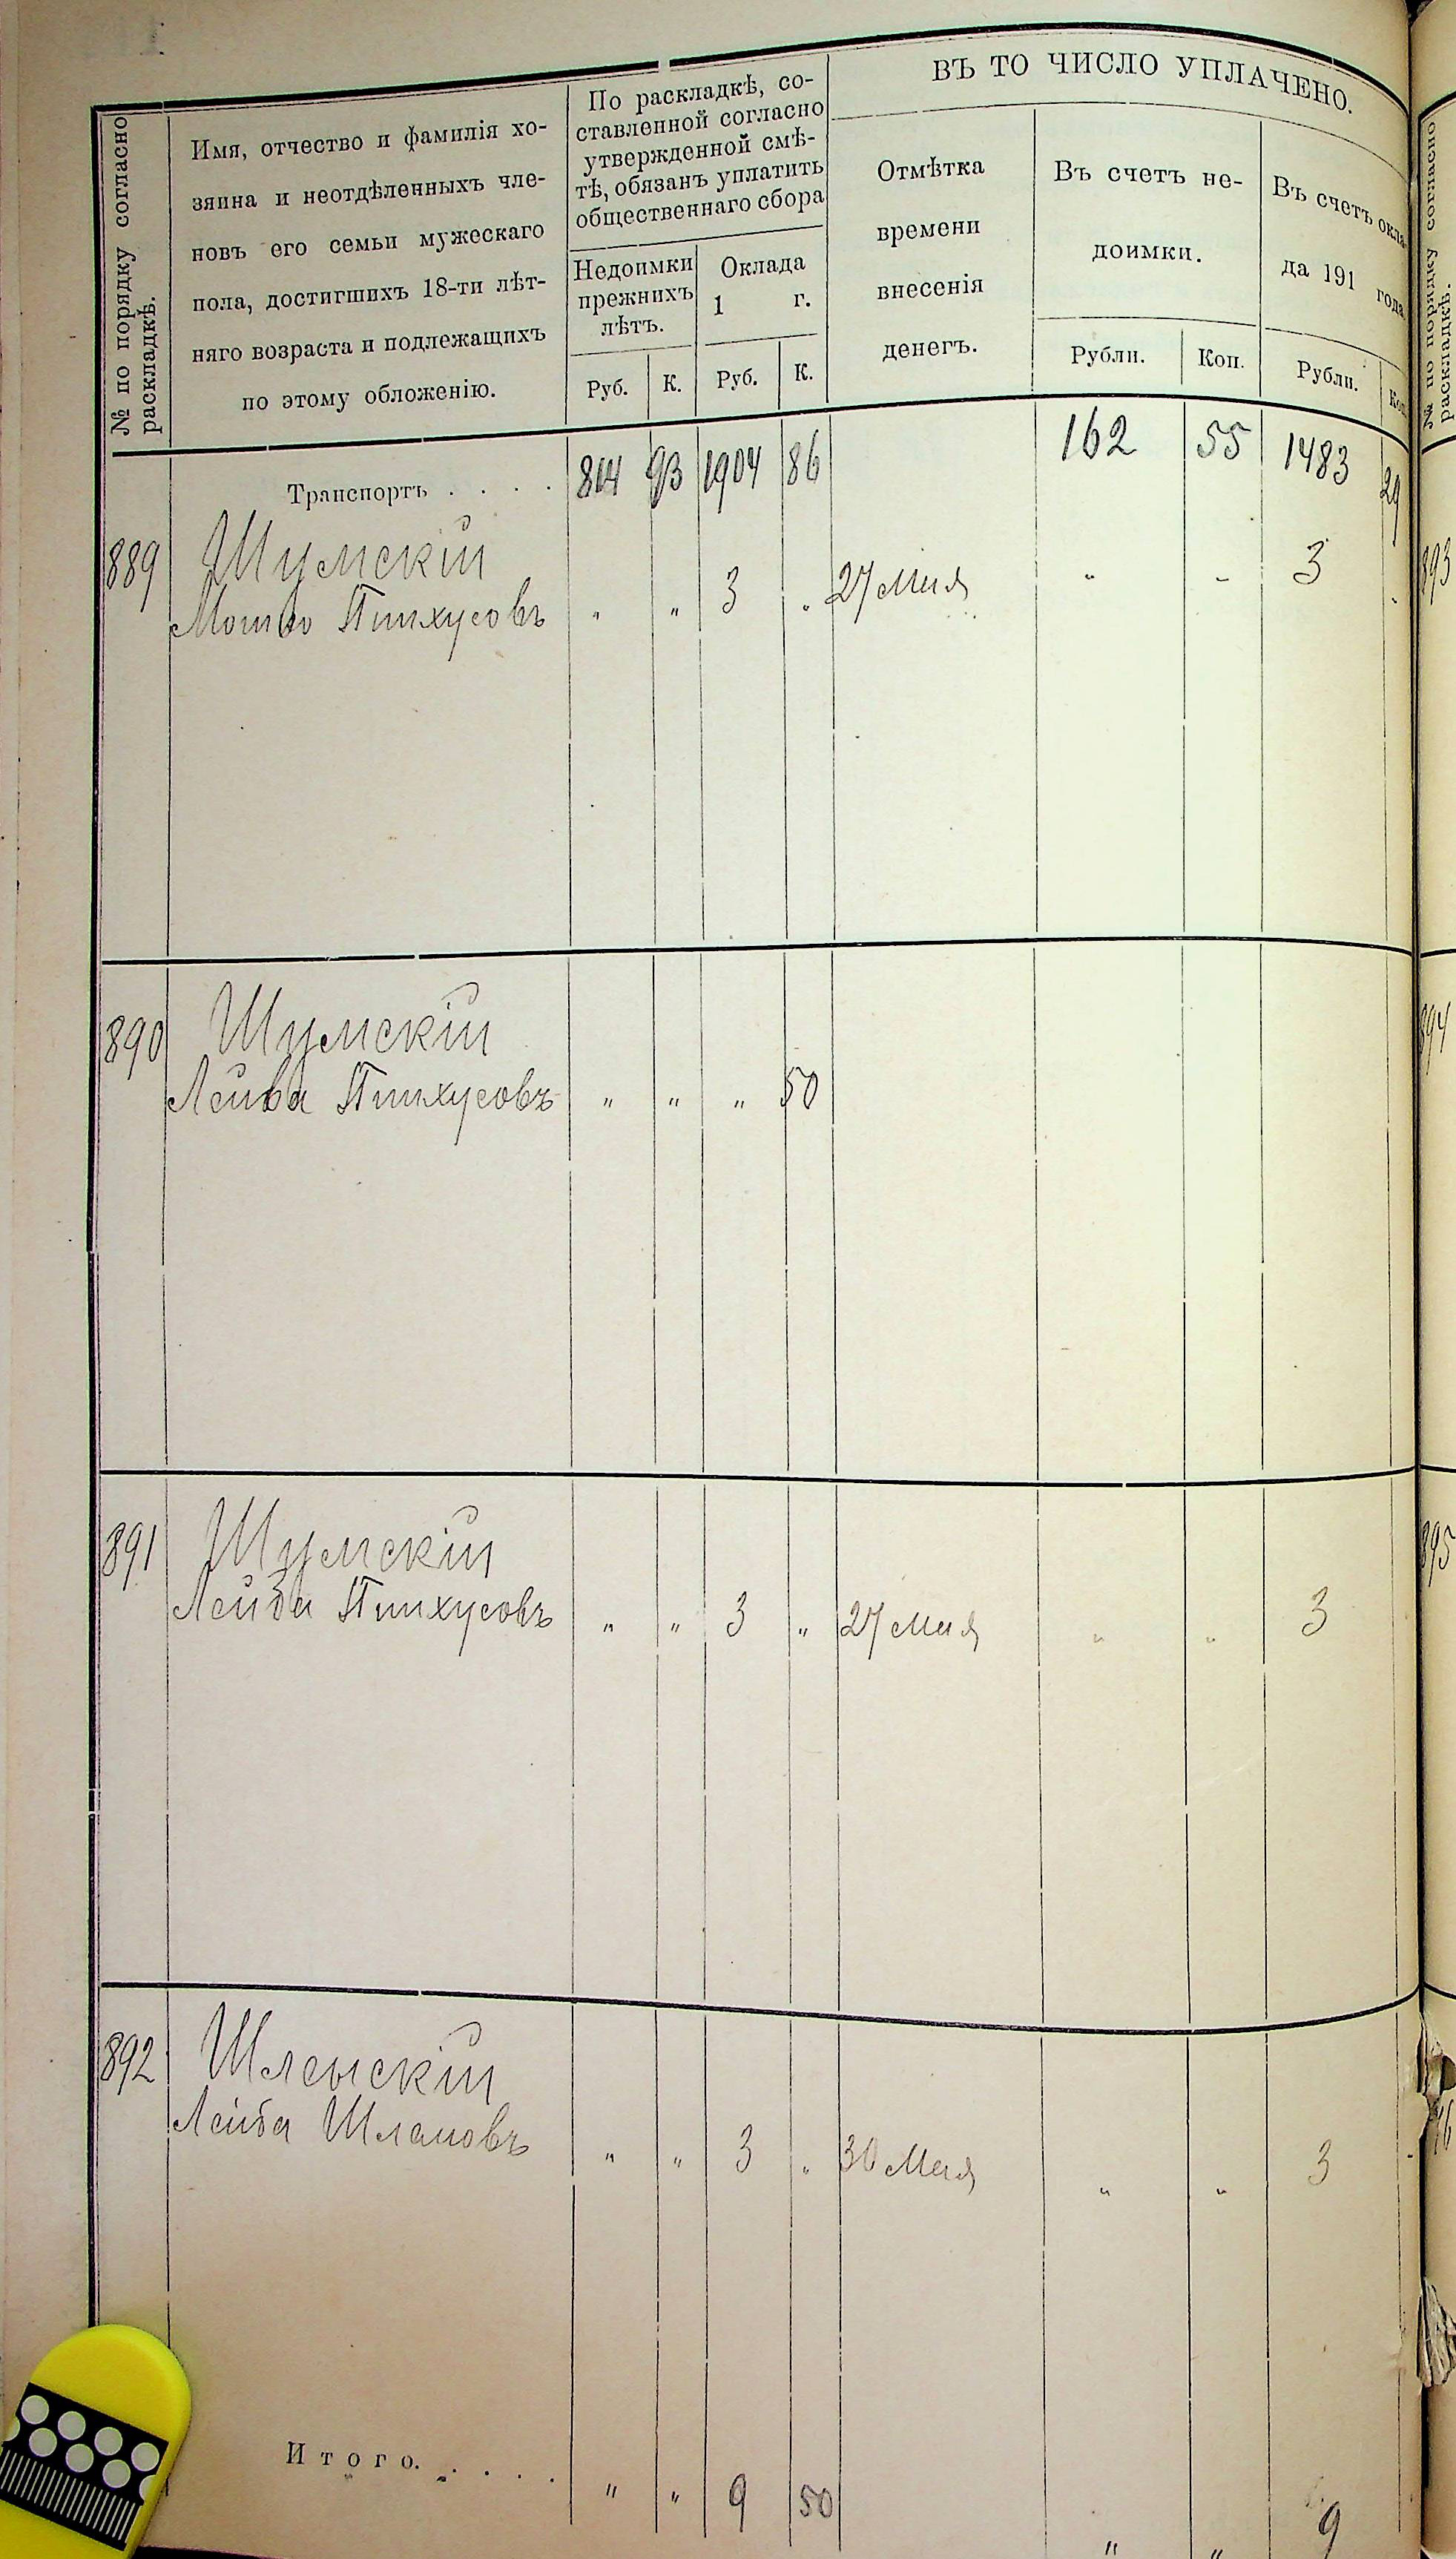 № по порядку согласно
раскладкѣ.
Имя, отчество и фамилія хо-
зяина и неотдѣленныхъ чле-
новъ его семьи мужескаго
пола, достигшихъ 18-ти лѣт-
няго возраста и подлежащихъ
по этому обложенію.
По раскладкѣ, со-
ставленной согласно
утвержденной смѣ-
тѣ, обязанъ уплатить
общественнаго сбора
Недоимки
прежнихъ
лѣтъ.
Оклада
1 г.
Руб. К. Руб. К.
ВЪ ТО ЧИСЛО УПЛАЧЕНО.
Отмѣтка
времени
внесенія
денегъ.
Въ счетъ не-
доимки.
Рубли. Коп.
Въ счетъ окла-
да 191 года
Рубли. Коп.
Транспортъ . . . . 814 93 1904 86 162 55 1483 29
889 Шумскій
Мошко Пинхусовъ " " 3 " 27 Мая " - 3 -
890 Шумскій
Лейба Пинхусовъ " " " 50
891 Шумскій
Лейба Пинхусовъ " " 3 " 27 Мая " " 3
892
Лейба " " 3 " 30 Мая " " 3 -
Итого. . . . . " " 9 50 " " 9
№ по порядку согласно
раскладкѣ.
893
894
895